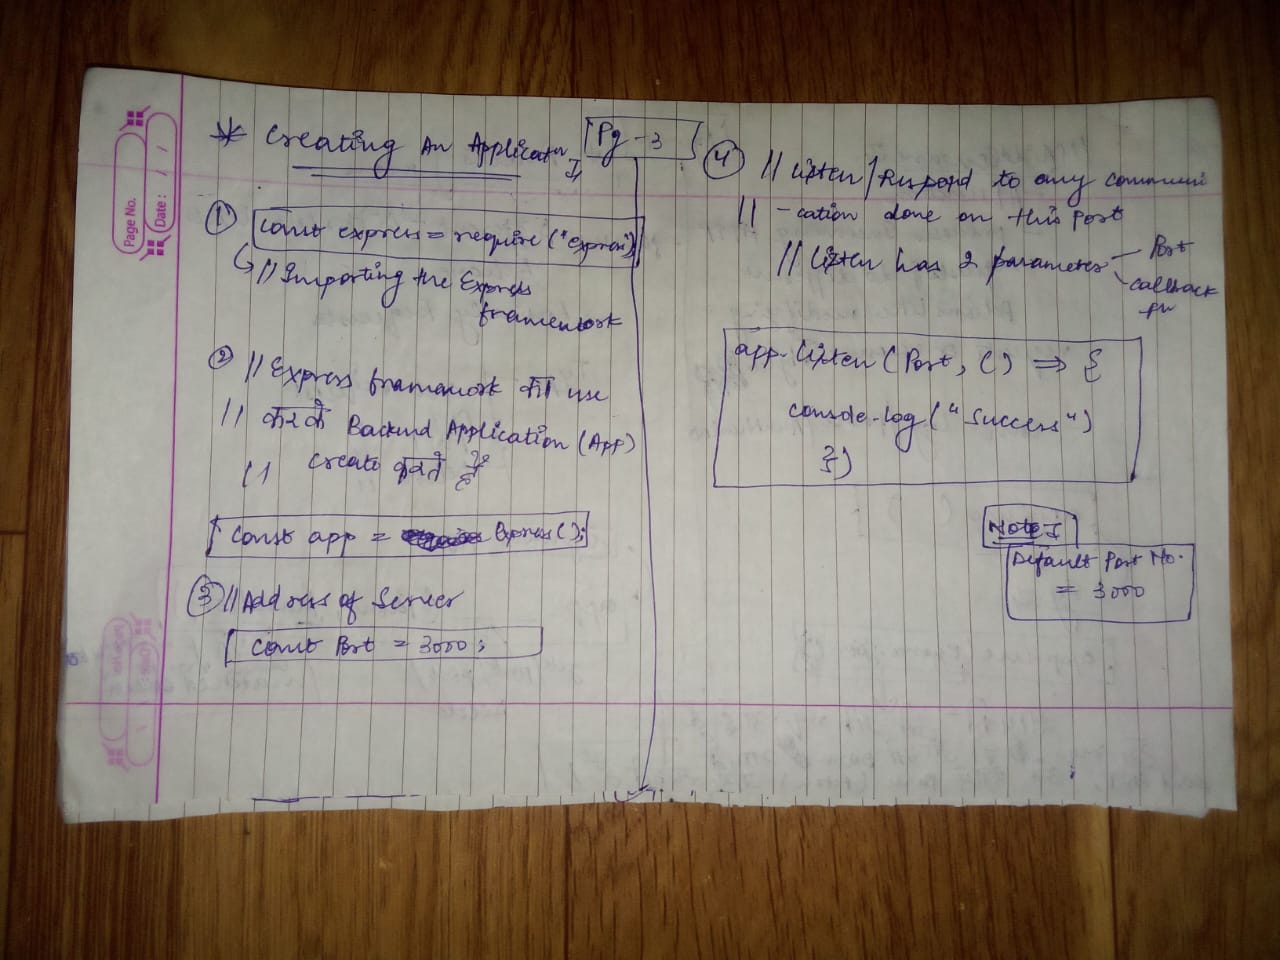 Page No.
Date: / /
* Creating An Application
Pg - 3
① const express = require("express")
// Importing the Express
framework
② // Express framework का use
// करके Backend Application (App)
// create करते है
const app = Express();
③ // Address of Server
const Port = 3000;
④ // listen / Respond to any communi
// -cation done on this port
// listen has 2 parameter
Port
callback
fn
app.listen(Port, () => {
console.log("Success")
})
Note
Default Port No.
= 3000